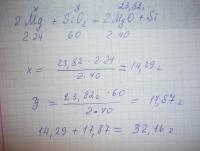 x y 23,82
2 Mg + SiO2 = 2 MgO + Si
2·24 60 2·40
x = 23,82 · 2·24 / 2·40 = 14,29 г
y = 23,82 г · 60 / 2·40 = 17,87 г
14,29 + 17,87 = 32,16 г